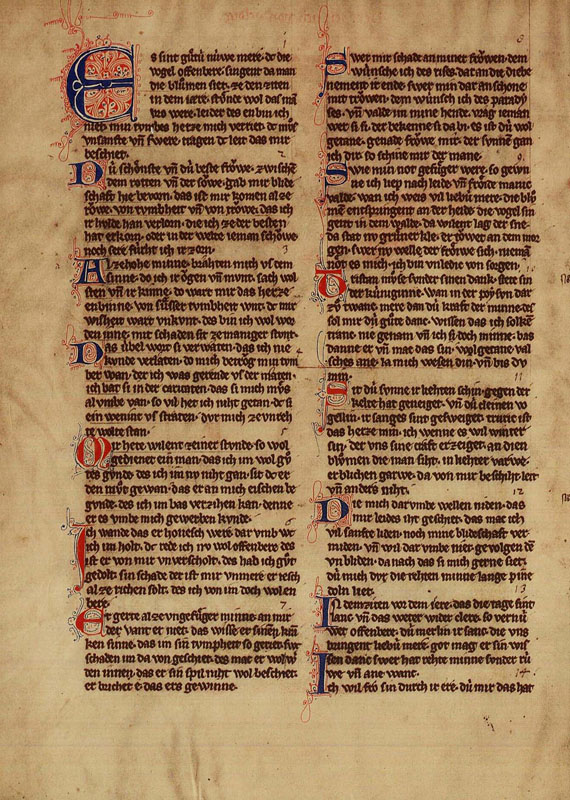 Es sint gůtú núwe mere· dc die
vogel offenbere· singent da man
die blůmen siet· ze den ziten
in dem iare· stůnde wol das man
vro were· leider des en bin ich
niet· min tumbes herze mich verriet· dc můs
unsanfte uñ swere· tragen dc leit das mir
beschiet·
Dú schönste uñ dú beste fröwe· zwischē
dem rotten uñ der söwe· gab mir blide
schaft hie bevorn· das ist mir komen al ze
röwe· von tumbheit uñ von
ir holde han verlorn· die ich ze der besten
hat erkorn· oder in der welte ieman schöwe
noch sere fúrht ich ir zorn·
Alze hohe minne· brahten mich us dem
sinne· do ich ir ögen uñ munt· sach wol
sten uñ ir kinne· do wart mir das herze
enbinne· von sůsser tumbheit wnt· dc mir
wisheit wart unkunt· des bin ich wol wor
den inne· mit schaden sit ze maniger stunt·
Das úbel wort si verwaten· das ich nie
kunde verlaten· do mich betrög min tom
ber wan· der ich was gerende us der maten·
ich bat si in der caritaten· das si mich můs
al umbe van· so vil het ich niht getan· dc si
ein wenint us straten· dur mich ze unreh
te wolte stan·
Mir hete wilent ze einer stunde· so wol
gedienet ein man· das ich im wol gů
tes gunde· des ich im nu niht gan· sit dc er
den můt gewan· das er an mich eischen be
gunde· des ich im bas verzihen kan· denne
er es umbe mich gewerben kunde·
Ich wande das er hovesch were· dar umb wc
ich im holt· dc rede ich nu wol offenbere· des
ist er von mir unverscholt· des had ich gůt
gedolt· sin schade der ist mir unmere· er iesch
al ze richen solt· des ich von im doch wol en
bere·
Er gerte al ze ungefůger minne· an mir
der vant er niet· das wisse er sinen kran
ken sinne· das im sin tumpheit so geriet· swc
schaden im da von geschiet· des mac er wol wˢ
den innen· das er sin spil niht wol beschiet·
er brichet e· das ers gewinne·
Swer mir schade an miner fröwen· dem
wúnsche ich des rises· dat an die diebe
nement ir ende· swer min dar an schone
mit trówen· dem wúnsch ich des paradý
ses· uñ valde im mine hende· vrag ieman
wer si si· der bekenne si da bi· es ist dú wol
getane· genade fröwe mir· der sunnē gan
ich dir· so schine mir der mane·
Swie min not gefůger were· so gewn
ne ich liep nach leide uñ fröide manic
valde· wan ich weis vil liebú mere· die blů
mē entspringent an der heide· die vogel sin
gent in dem walde· da wilent lag der sne·
da stat nv grůner kle· er tówet an dem mor
gen· swer nu welle der fröwe sich· nieman
not es mich· ich bin unledic von sorgen·
Tristan můse sunder sinen dank· stete sin
der kúniginne· wan in der poýsun dar
zů twanc· mere dan dú kraft der minne· des
sol mir dú gůte danc· wissen das ich solkē
tranc· nie genam uñ ich si doch minne· bas
danne er uñ mac das sin· wol getane val
sches ane· la mich wesen din uñ bis du
min·
Sit dú sunne ir liehten schin· gegen der
kelte hat geneiget· uñ dú cleinen vo
gellin· ir sanges sint gesweiget· truric ist
das herze min· ich wenne es wil winter
sin· der uns sine craft erzeiget· an dien
blůmen die man siht· in liehter varwe·
erblichen garwe· da von mir beschiht· leit
uñ anders niht·
Die mich dar umbe wellen niden· das
mir leides iht geschiet· das mac ich
vil sanfte liden· noch mine blideschaft ver
miden· uñ wil dar umbe niet· gevolgen dē
un bliden· da nach das si mich gerne siet·
dú mich dur die rehten minne lange pine
doln liet·
In dem ziten von dem iere· das die tage sint
lanc· uñ das weter wider clere· so vernú
wet offenbere· dú merlin ir sanc· die uns
bringent liebú mere· got mag er sin wi
sen danc· swer hat rehte minne· sunder rú
we uñ ane wanc·
Ich wil fro sin durch ir ere· dú mir das hat